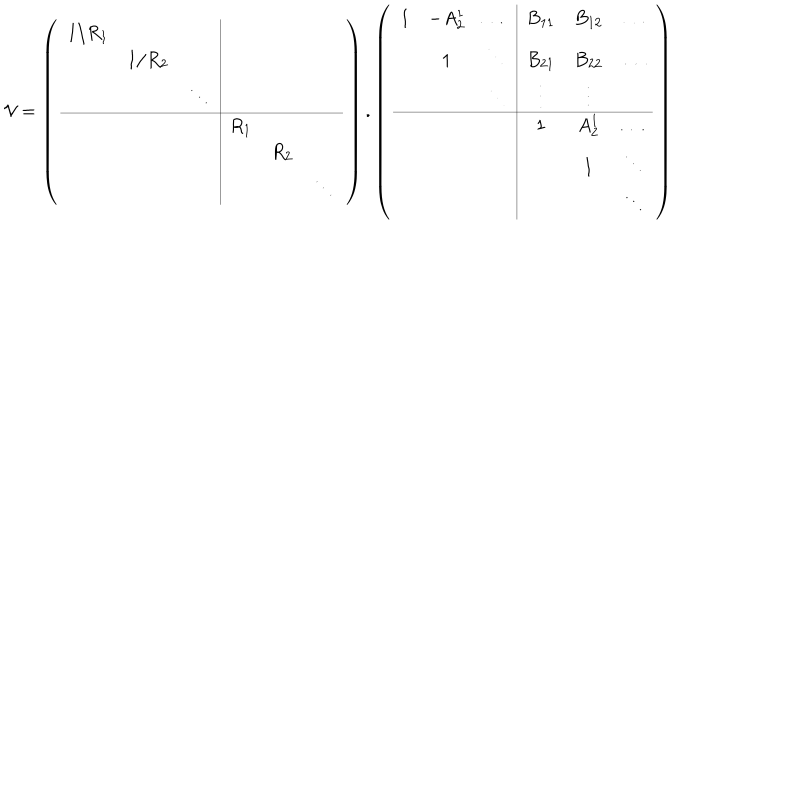 \mathcal{V} = \left( \begin{array}{ccc|ccc} 1\backslash R_1 & & & & & \\ & 1/R_2 & & & & \\ & & \ddots & & & \\ \hline & & & R_1 & & \\ & & & & R_2 & \\ & & & & & \ddots \end{array} \right) . \left( \begin{array}{ccc|ccc} 1 & -A_2^1 & \dots & B_{11} & B_{12} & \dots \\ & 1 & \ddots & B_{21} & B_{22} & \dots \\ & & \ddots & \vdots & \vdots & \\ \hline & & & 1 & A_2^1 & \dots \\ & & & & 1 & \ddots \\ & & & & & \ddots \end{array} \right)